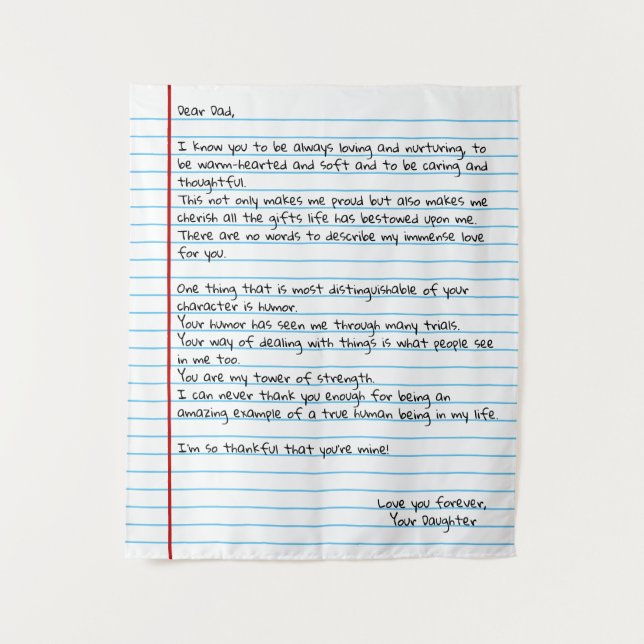 Dear Dad,
I know you to be always loving and nurturing, to
be warm-hearted and soft and to be caring and
thoughtful.
This not only makes me proud but also makes me
cherish all the gifts life has bestowed upon me.
There are no words to describe my immense love
for you.
One thing that is most distinguishable of your
character is humor.
Your humor has seen me through many trials.
Your way of dealing with things is what people see
in me too.
You are my tower of strength.
I can never thank you enough for being an
amazing example of a true human being in my life.
I'm so thankful that you're mine!
Love you forever,
Your Daughter